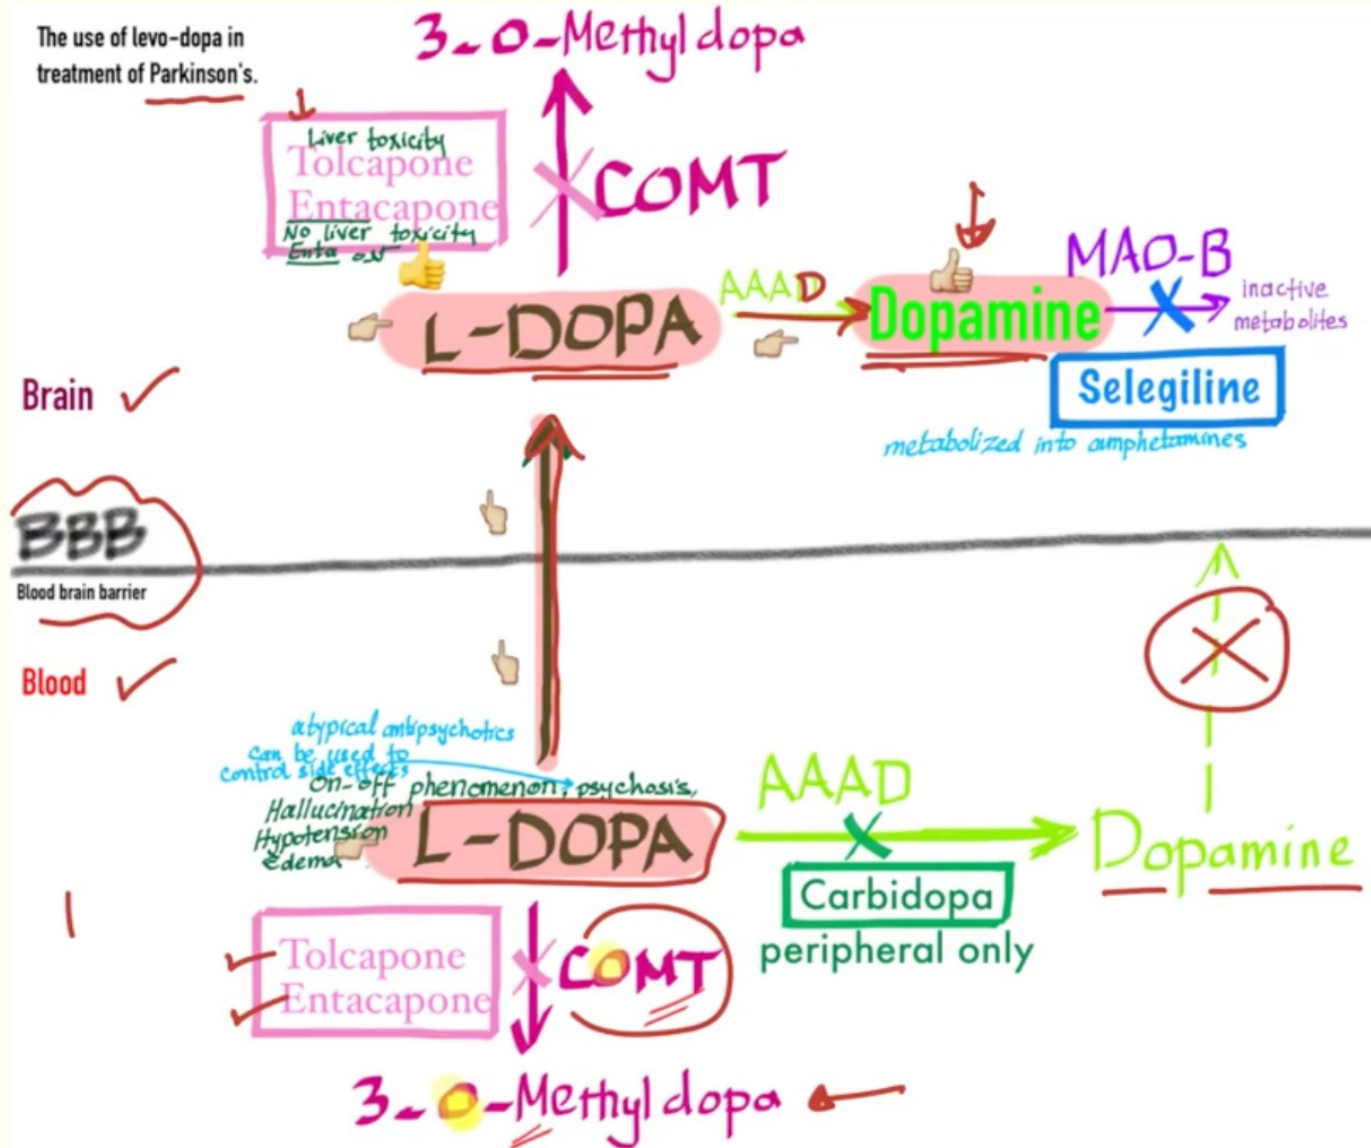 The use of levo-dopa in
treatment of Parkinson's.
3-O-Methyl dopa
Liver toxicity
Tolcapone
Entacapone
No liver toxicity
Enta
COMT
L-DOPA
AAAD
Dopamine
MAO-B
inactive
metabolites
Selegiline
metabolized into amphetamines
Brain
BBB
Blood brain barrier
Blood
atypical antipsychotics
can be used to
control side effects
On-off phenomenon, psychosis,
Hallucination
Hypotension
Edema
L-DOPA
AAAD
Carbidopa
peripheral only
Dopamine
Tolcapone
Entacapone
COMT
3-O-Methyl dopa